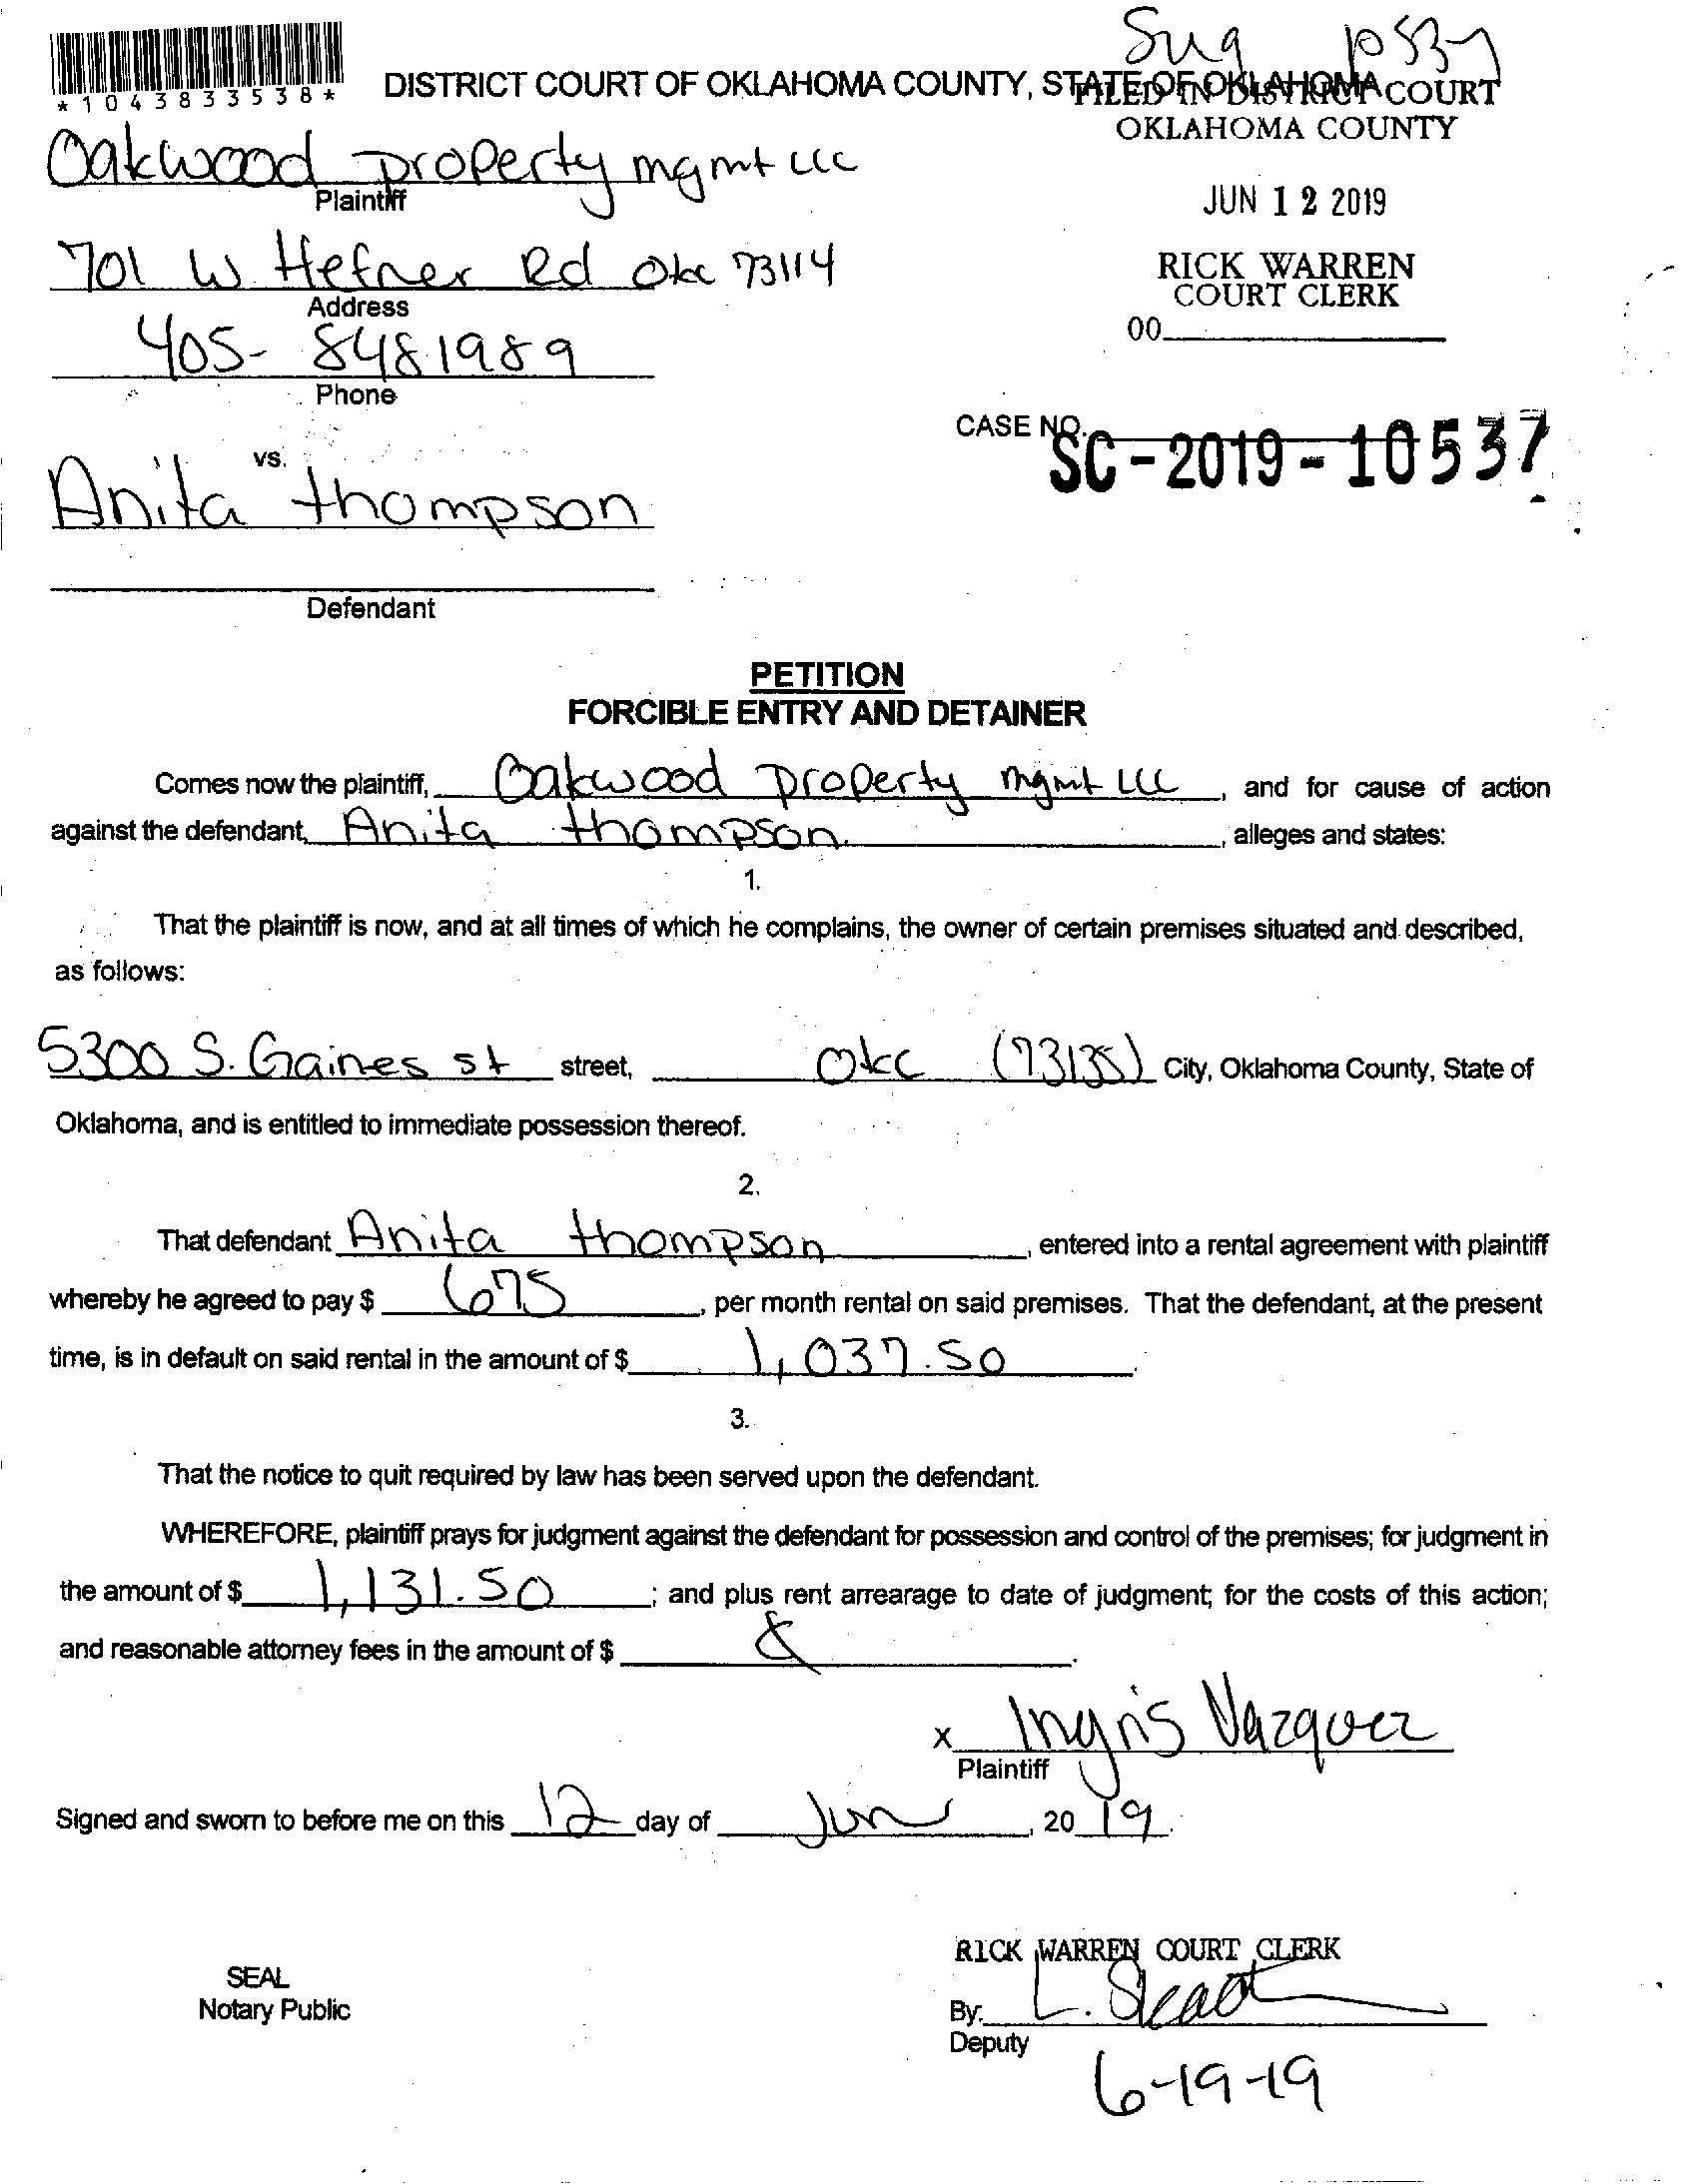 Sug
*1043833538*
DISTRICT COURT OF OKLAHOMA COUNTY, STATE OF OKLAHOMA
FILED IN DISTRICT COURT
OKLAHOMA COUNTY
Oakwood property mgmt LLC
Plaintiff
JUN 12 2019
701 W. Hefner Rd Okc 73114
Address
RICK WARREN
COURT CLERK
00
405-8481989
Phone
CASE NO. SC-2019-10537
vs.
Anita thompson
Defendant
PETITION
FORCIBLE ENTRY AND DETAINER
Comes now the plaintiff, Oakwood property mgmt LLC, and for cause of action
against the defendant, Anita thompson, alleges and states:
1.
That the plaintiff is now, and at all times of which he complains, the owner of certain premises situated and described,
as follows:
5300 S. Gaines st street, Okc (73135) City, Oklahoma County, State of
Oklahoma, and is entitled to immediate possession thereof.
2.
That defendant Anita thompson, entered into a rental agreement with plaintiff
whereby he agreed to pay $ 675, per month rental on said premises. That the defendant, at the present
time, is in default on said rental in the amount of $ 1,037.50.
3.
That the notice to quit required by law has been served upon the defendant.
WHEREFORE, plaintiff prays for judgment against the defendant for possession and control of the premises; for judgment in
the amount of $ 1,131.50; and plus rent arrearage to date of judgment; for the costs of this action;
and reasonable attorney fees in the amount of $
x Ingris Vazquez
Plaintiff
Signed and sworn to before me on this 12 day of Jun, 2019.
RICK WARREN COURT CLERK
SEAL
Notary Public
By: L.
Deputy
6-19-19